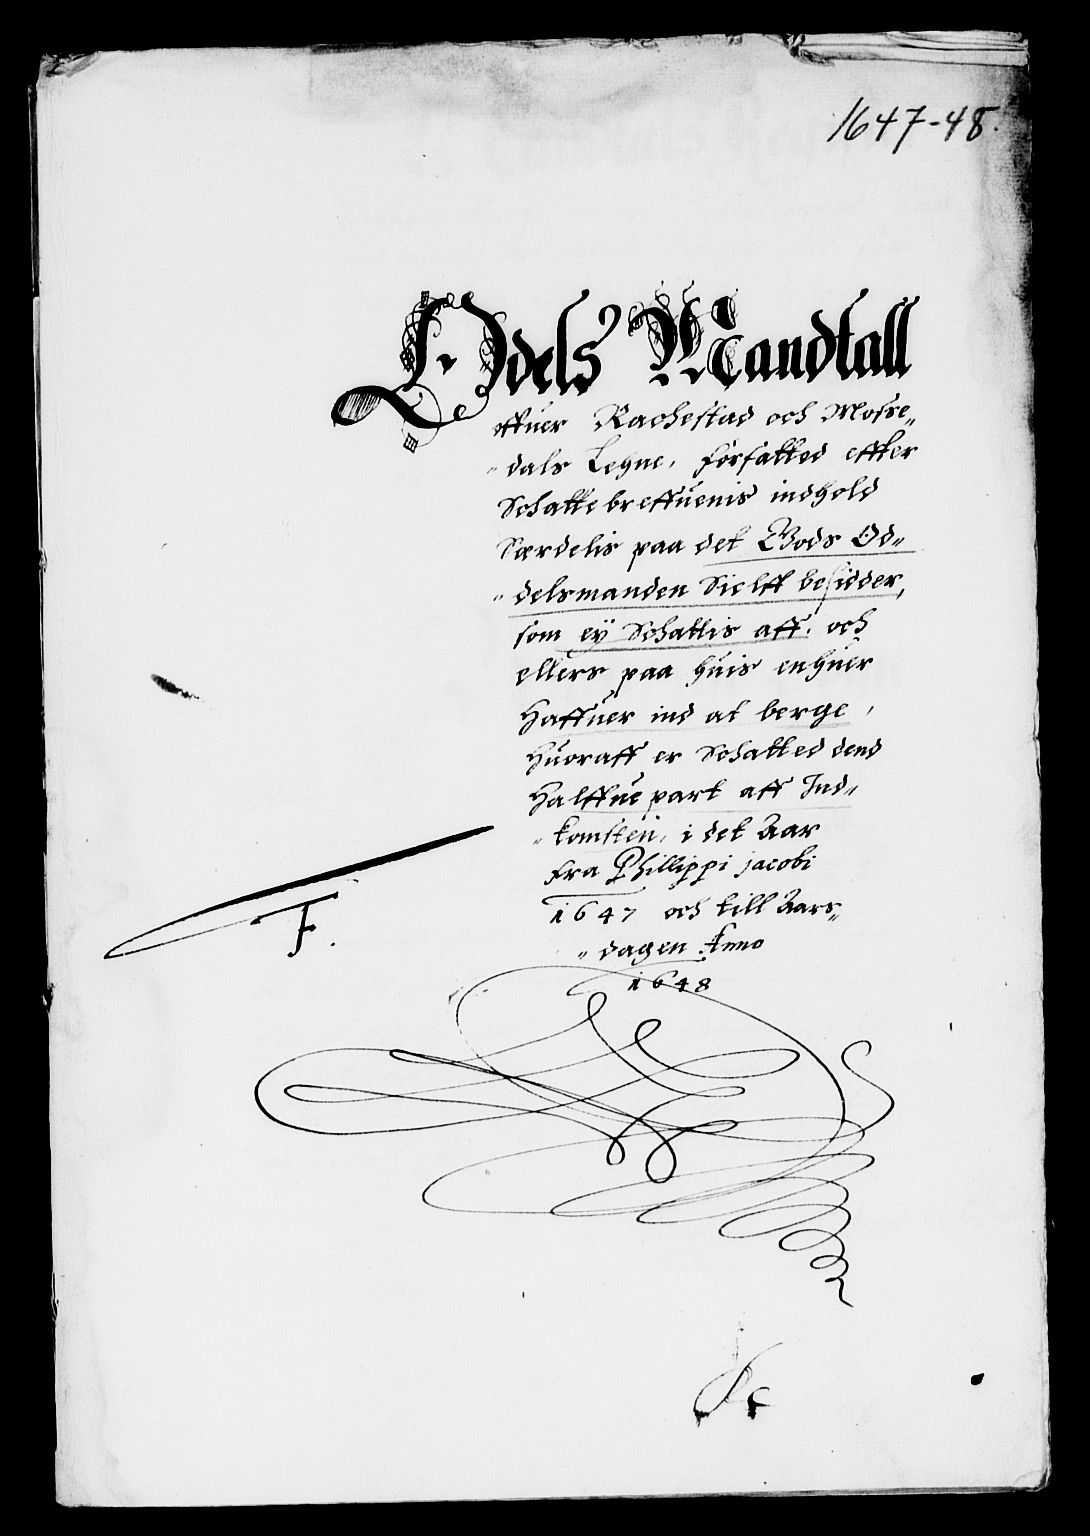 1647-48.
Odels Mandtall
offuer Rachestad och Mosse„
„dals Lehne, forfatted effter
Schattebreffuenis indhold
Særdelis paa det Gods Od„
„delsmanden Sielff besidder,
som ey Schattis aff. och
ellers paa huis enhuer
Haffuer ind at berge,
Huoraff er Schatted dend
Halffue part aff Ind„
„komsten, i det Aar
fra Phillippi Jacobi
1647 och till Aars„
„dagen Anno
1648
F.